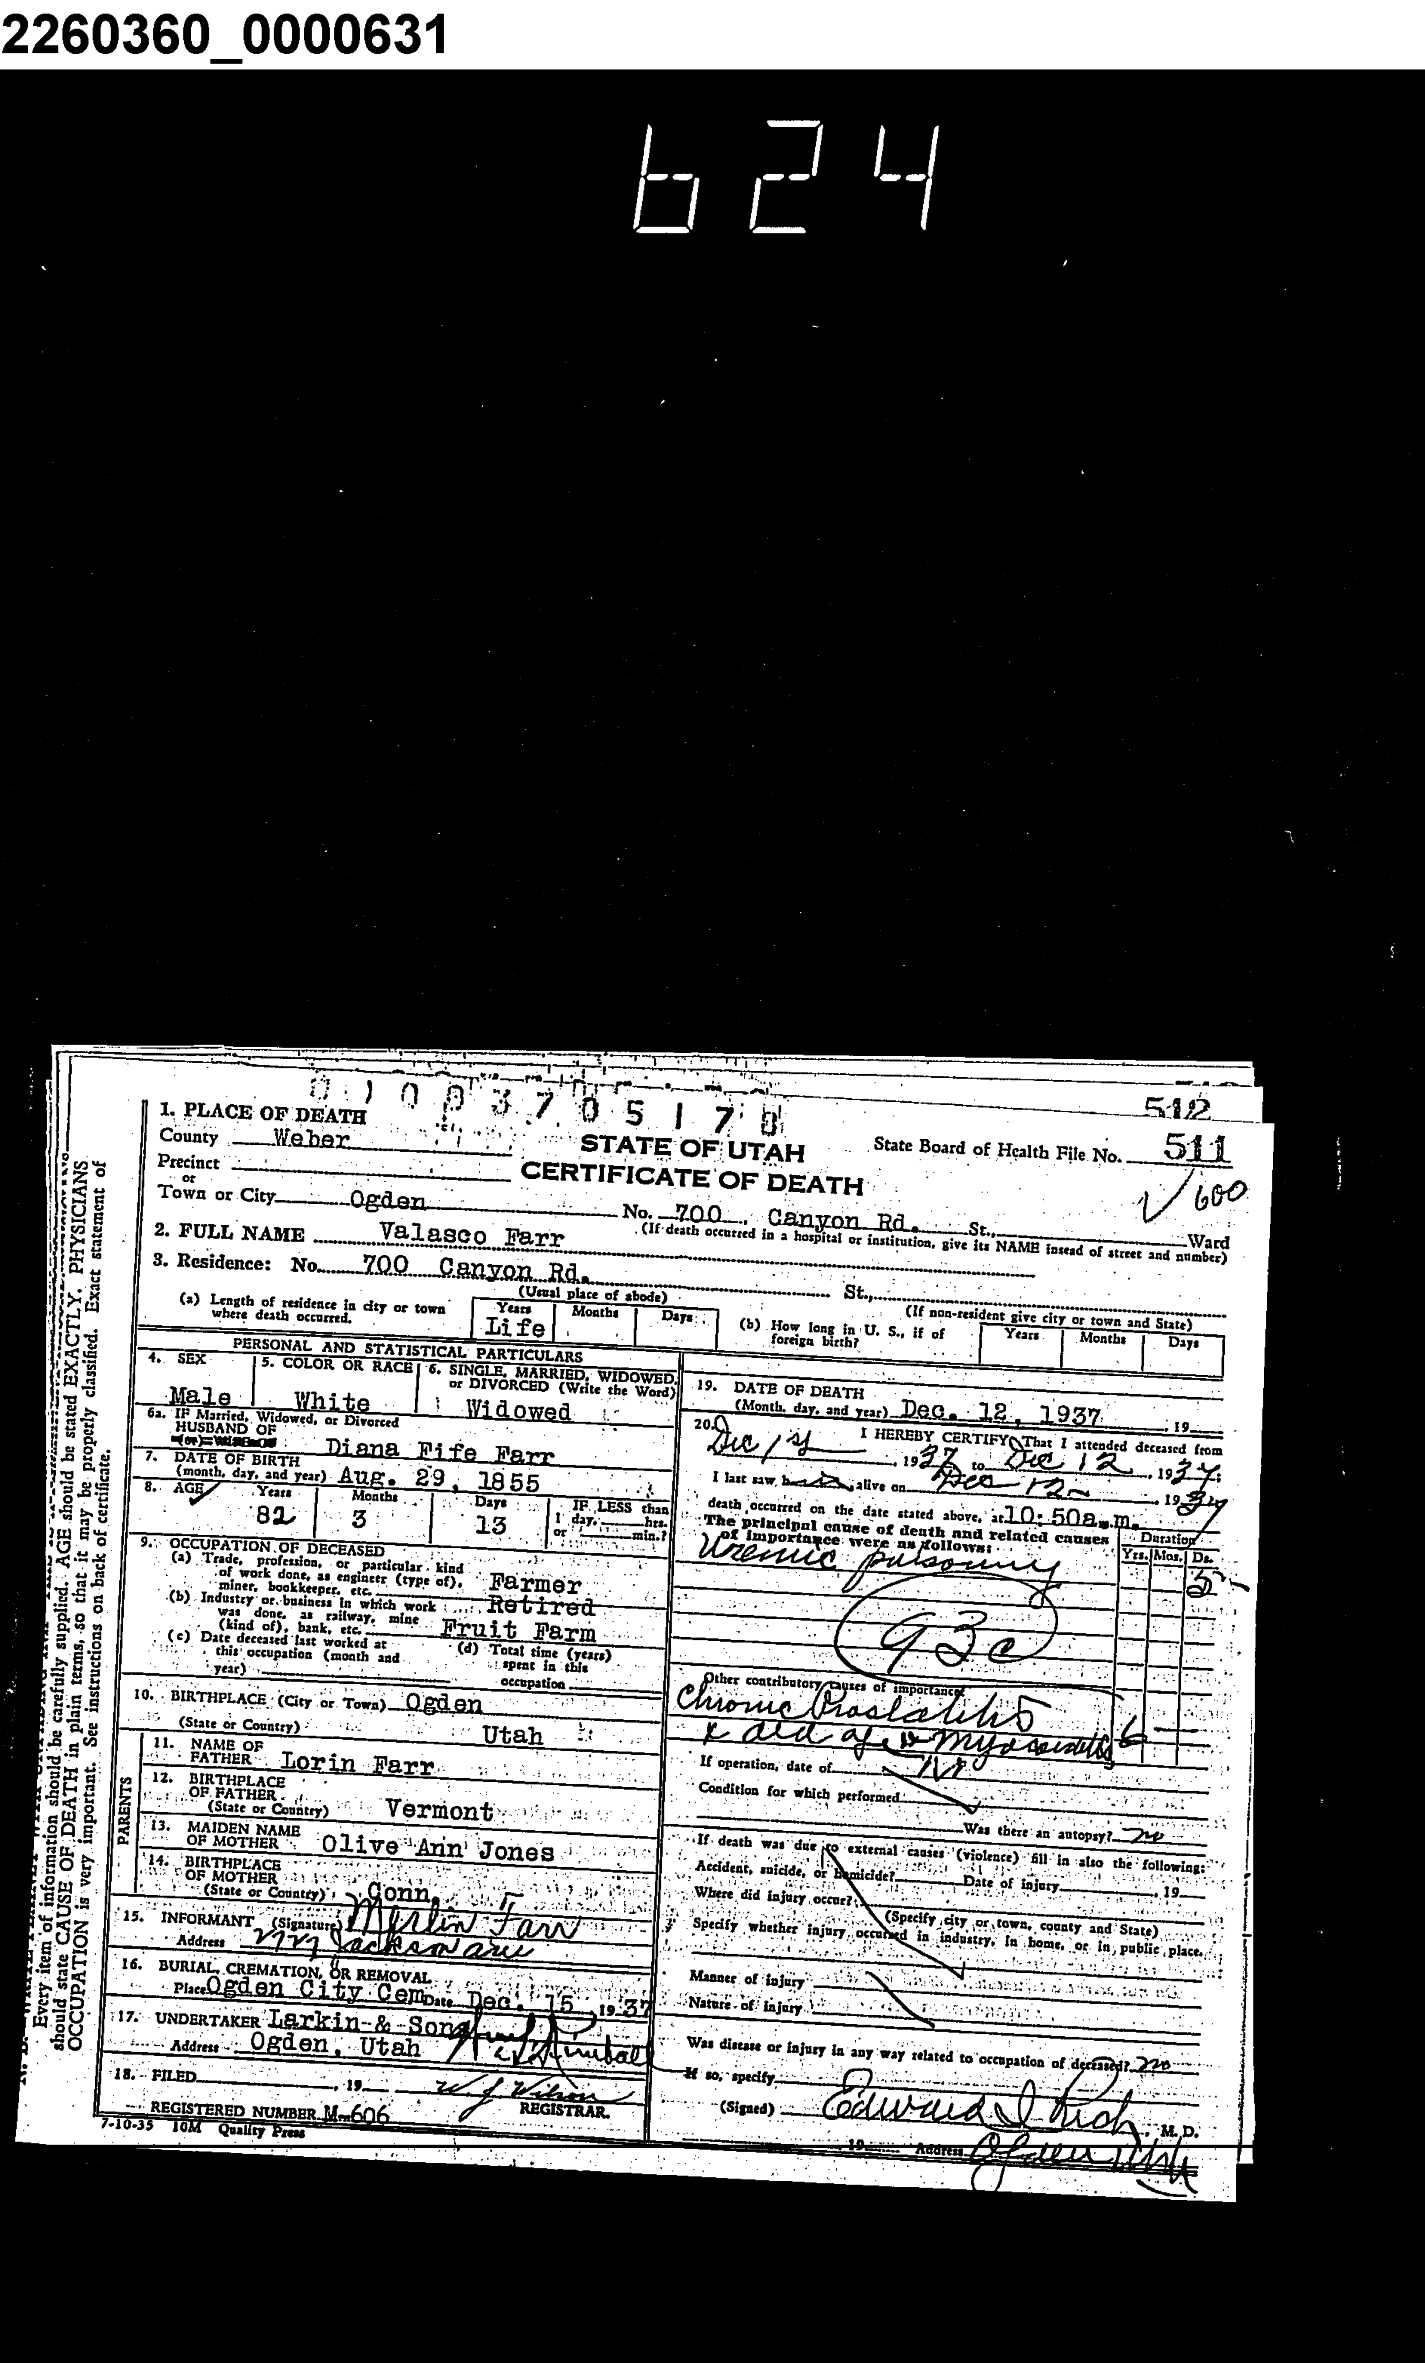 2260360_0000631
624
512
1. PLACE OF DEATH
STATE OF UTAH
CERTIFICATE OF DEATH
State Board of Health File No. 511
County Weber
√ 600
Precinct
or
Town or City Ogden No. 700 Canyon Rd. St., Ward
(If death occurred in a hospital or institution, give its NAME insead of street and number)
2. FULL NAME Valasco Farr
3. Residence: No. 700 Canyon Rd. St.,
(Usual place of abode) (If non-resident give city or town and State)
(a) Length of residence in city or town where death occurred. Years Life Months Days
(b) How long in U. S., if of foreign birth? Years Months Days
PERSONAL AND STATISTICAL PARTICULARS
4. SEX Male
5. COLOR OR RACE White
6. SINGLE, MARRIED, WIDOWED, or DIVORCED (Write the Word) Widowed
6a. IF Married, Widowed, or Divorced
HUSBAND OF Diana Fife Farr
7. DATE OF BIRTH
(month, day, and year) Aug. 29, 1855
8. AGE Years 82 Months 3 Days 13 IF LESS than 1 day, hrs. or min.?
9. OCCUPATION OF DECEASED
(a) Trade, profession, or particular kind
of work done, as engineer (type of),
miner, bookkeeper, etc. Farmer Retired
(b) Industry or business in which work
was done, as railway, mine
(kind of), bank, etc. Fruit Farm
(c) Date deceased last worked at
this occupation (month and
year)
(d) Total time (years)
spent in this
occupation
10. BIRTHPLACE (City or Town) Ogden
(State or Country) Utah
PARENTS
11. NAME OF
FATHER Lorin Farr
12. BIRTHPLACE
OF FATHER
(State or Country) Vermont
13. MAIDEN NAME
OF MOTHER Olive Ann Jones
14. BIRTHPLACE
OF MOTHER
(State or Country) Conn.
15. INFORMANT (Signature) Merlin F Farr
Address Jackson ave
16. BURIAL, CREMATION, OR REMOVAL
Place Ogden City Cem Date Dec. 15, 1937
17. UNDERTAKER Larkin & Sons
Address Ogden, Utah
18. FILED , 19 W J Wilson
REGISTRAR.
REGISTERED NUMBER M-606
7-10-35 10M Quality Press
19. DATE OF DEATH
(Month, day, and year) Dec. 12, 1937 , 19
20. I HEREBY CERTIFY, That I attended deceased from
Dec 1st , 1937 to Dec 12 , 1937
I last saw him alive on Dec 12 , 1937
death occurred on the date stated above, at 10:50a.m.
The principal cause of death and related causes
of importance were as follows: Duration
Yrs. Mos. Ds.
Uremic poisoning 5
93c
Other contributory causes of importance:
Chronic Prostatitis
6
If operation, date of No
Condition for which performed
Was there an autopsy? no
If death was due to external causes (violence) fill in also the following:
Accident, suicide, or homicide? Date of injury , 19
Where did injury occur?
(Specify city or town, county and State)
Specify whether injury occurred in industry, in home, or in public place.
Manner of injury
Nature of injury
Was disease or injury in any way related to occupation of deceased? no
If so, specify
(Signed) Edward I Rich , M. D.
19 Address Ogden Utah
Every item of information should be carefully supplied. AGE should be stated EXACTLY. PHYSICIANS
should state CAUSE OF DEATH in plain terms, so that it may be properly classified. Exact statement of
OCCUPATION is very important. See instructions on back of certificate.